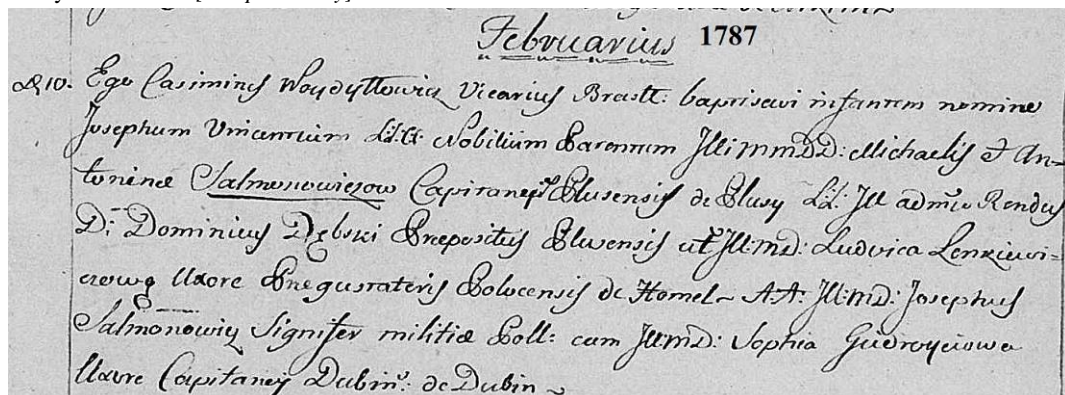 Februarius 1787
D. 10. Ego Casimirus Woydyłłowicz Vicarius Brasl: baptisavi infantem nomine
Josephum Vincentium L:L: Nobilium Parentum Jllimm D:D: Michaelis & An-
toninæ Salmonowiczow Capitaney Plusensis de Plusy L:L: Jll adm Rendus
D: Dominius Dębski Præpositus Plusensis Jll:m D: Ludvica Lenkiewi-
czowa Uxore Prægustatoris Polocensis de Homel ~ A:A: Jll:m D: Josephus
Salmonowicz Signifer militiæ Poll: cum Jll:m D: Sophia Giedroyciowa
Uxore Capitaney Dubin: de Dubin ~